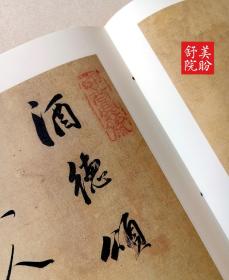 美盼
舒院
酒德頌
人